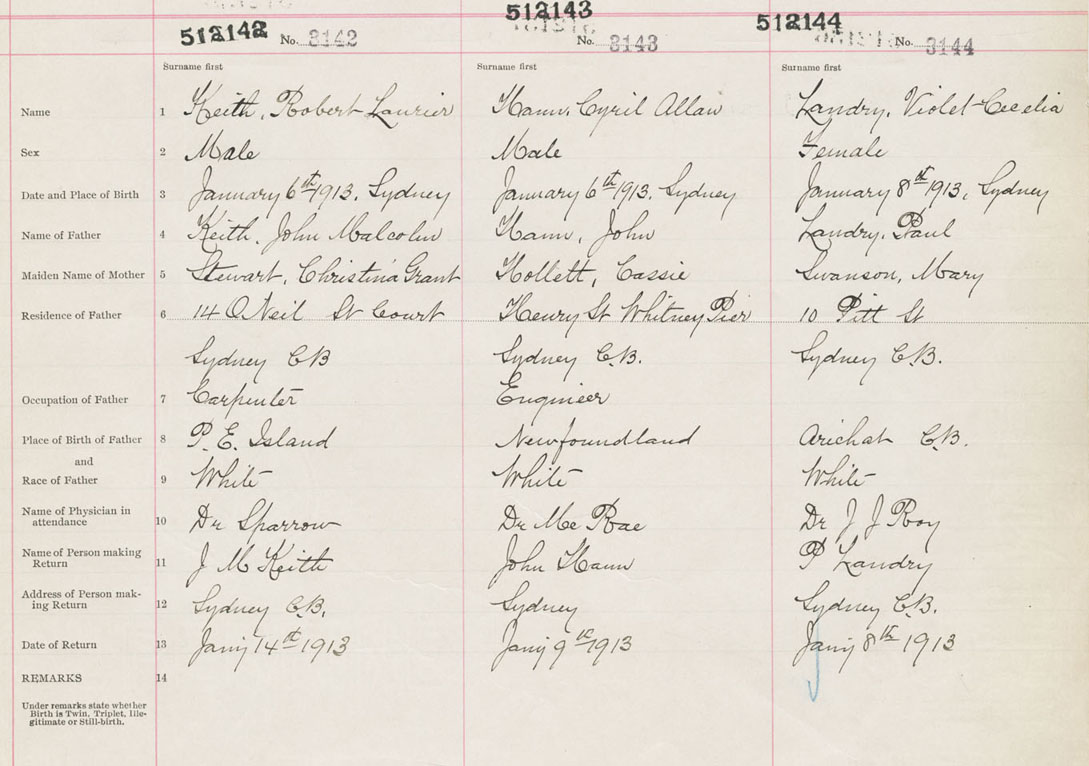 512142 No. 3142 512143 No. 3143 512144 No. 3144
Surname first Surname first Surname first
Name 1 Keith, Robert Laurier Hann, Cyril Allan Landry, Violet Cecelia
Sex 2 Male Male Female
Date and Place of Birth 3 January 6th 1913, Sydney January 6th 1913, Sydney January 8th 1913, Sydney
Name of Father 4 Keith, John Malcolm Hann, John Landry, Paul
Maiden Name of Mother 5 Stewart, Christina Grant Hollett, Cassie Swanson, Mary
Residence of Father 6 14 O Neil St Court Henry St Whitney Pier 10 Pitt St
Sydney C B Sydney C.B. Sydney C.B.
Occupation of Father 7 Carpenter Engineer
Place of Birth of Father 8 P. E. Island Newfoundland Arichat C.B.
and
Race of Father 9 White White White
Name of Physician in
attendance 10 Dr Sparrow Dr Mc Rae Dr J J Roy
Name of Person making
Return 11 J M Keith John Hann P Landry
Address of Person mak-
ing Return 12 Sydney C.B. Sydney Sydney C.B.
Date of Return 13 Jany 14th 1913 Jany 9th 1913 Jany 8th 1913
REMARKS 14
Under remarks state whether
Birth is Twin, Triplet, Ille-
gitimate or Still-birth.